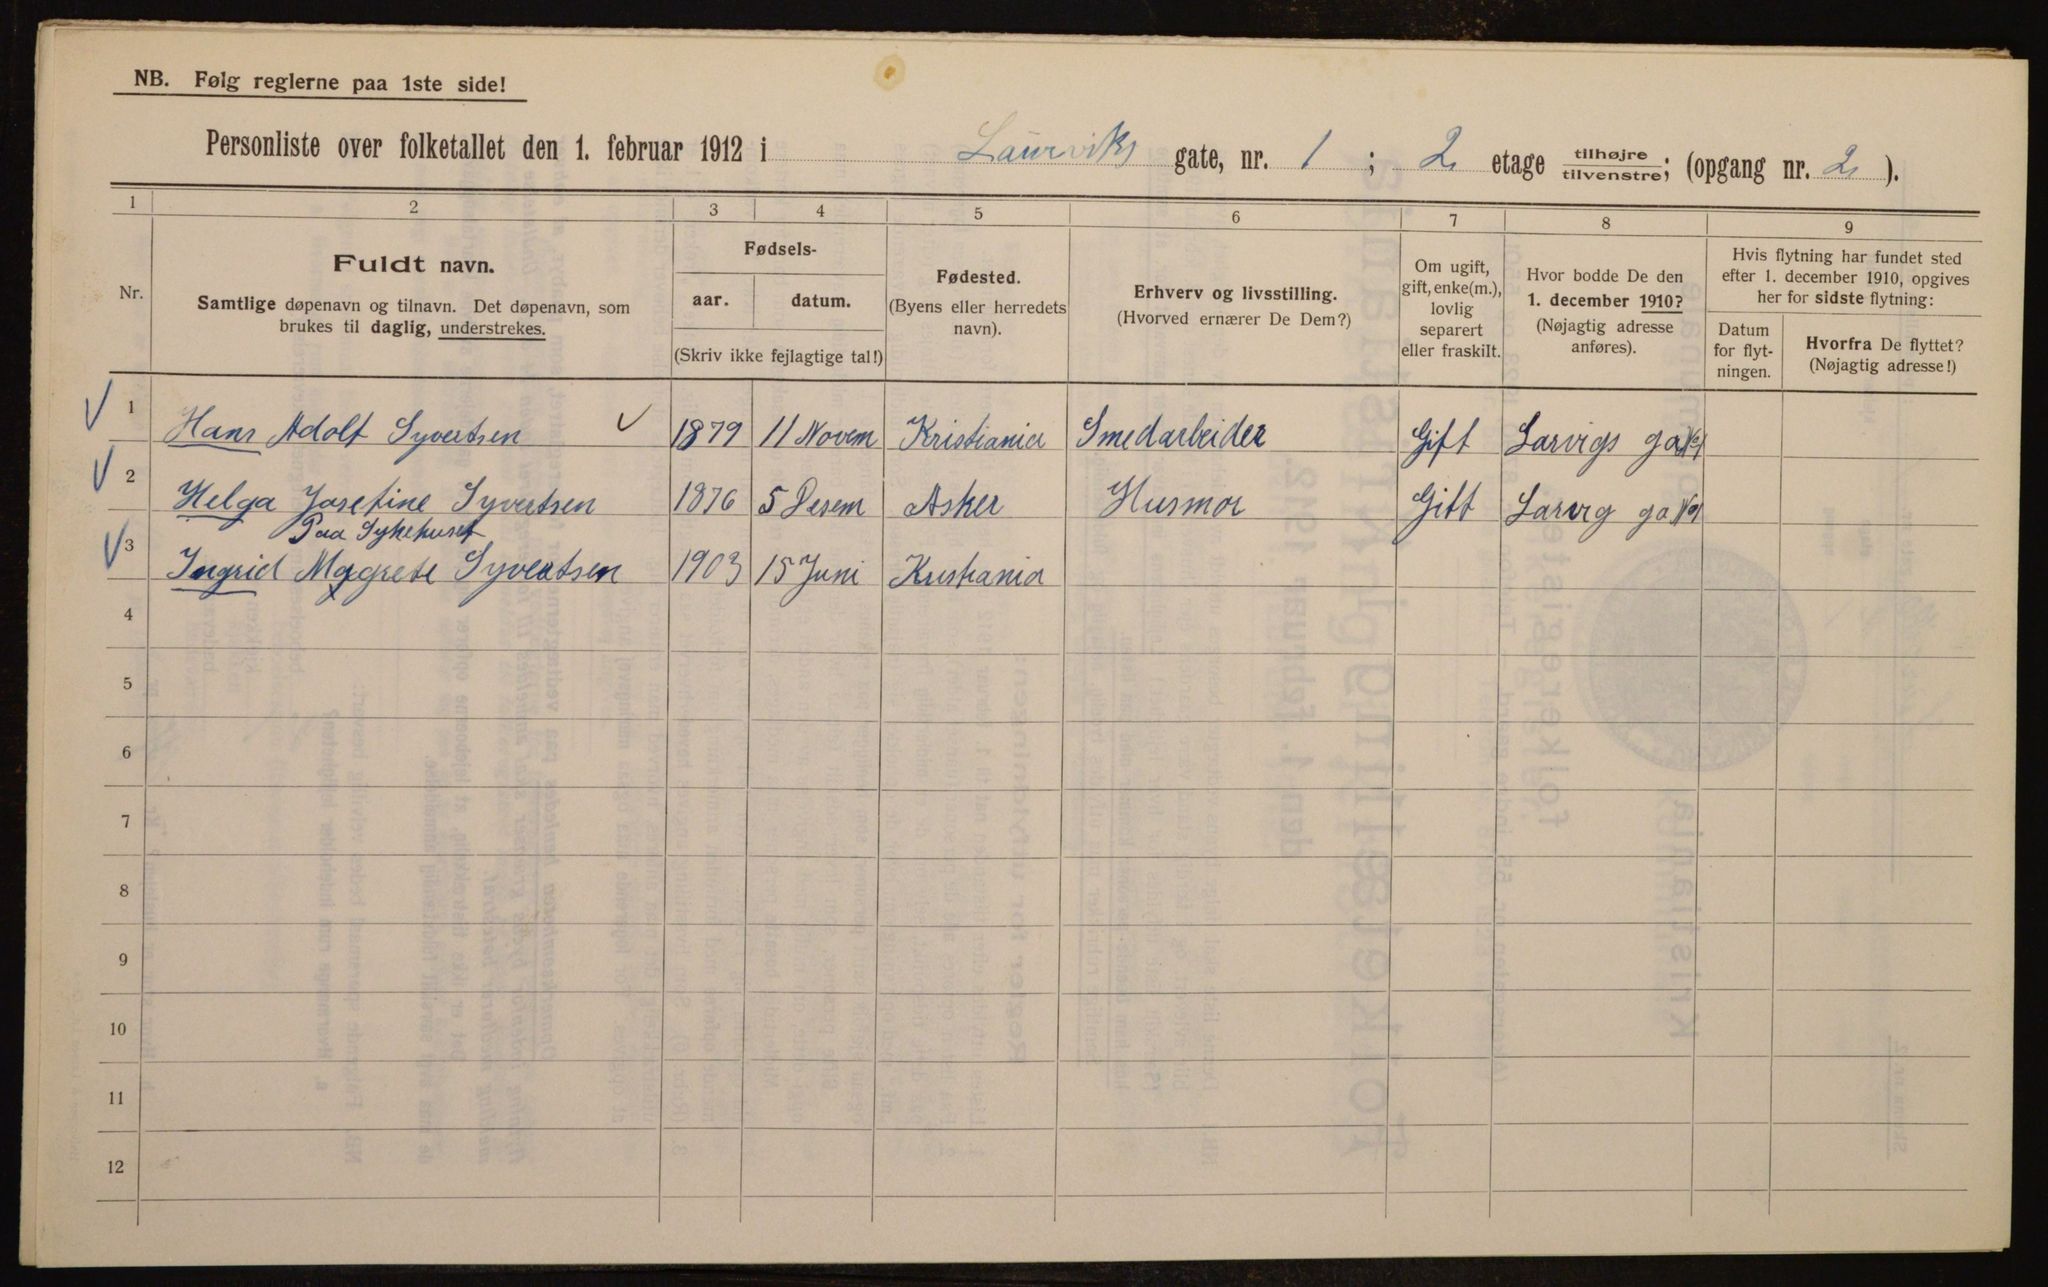 NB. Følg reglerne paa 1ste side!
Personliste over folketallet den 1. februar 1912 i Laurviks gate, nr. 1 ; 2 etage tilhøjre tilvenstre; (opgang nr. 2 ).
1 2 3 4 5 6 7 8 9
Nr.
Fuldt navn.
Samtlige døpenavn og tilnavn. Det døpenavn, som
brukes til daglig, understrekes.
Fødsels-
aar. datum.
(Skriv ikke fejlagtige tal!)
Fødested.
(Byens eller herredets
navn).
Erhverv og livsstilling.
(Hvorved ernærer De Dem?)
Om ugift,
gift, enke(m.),
lovlig
separert
eller fraskilt.
Hvor bodde De den
1. december 1910?
(Nøjagtig adresse
anføres).
Hvis flytning har fundet sted
efter 1. december 1910, opgives
her for sidste flytning:
Datum
for flyt-
ningen.
Hvorfra De flyttet?
(Nøjagtig adresse!)
1 Hans Adolf Syvertsen 1879 11 Novem Kristiania Smedarbeider Gift Larvigs ga No 1
2 Helga Josefine Syvertsen 1876 5 Desem Asker Husmor Gift Larvig ga No 1
Paa Sykehuset
3 Ingrid Magrete Syvertsen 1903 15 Juni Kristiania
4
5
6
7
8
9
10
11
12